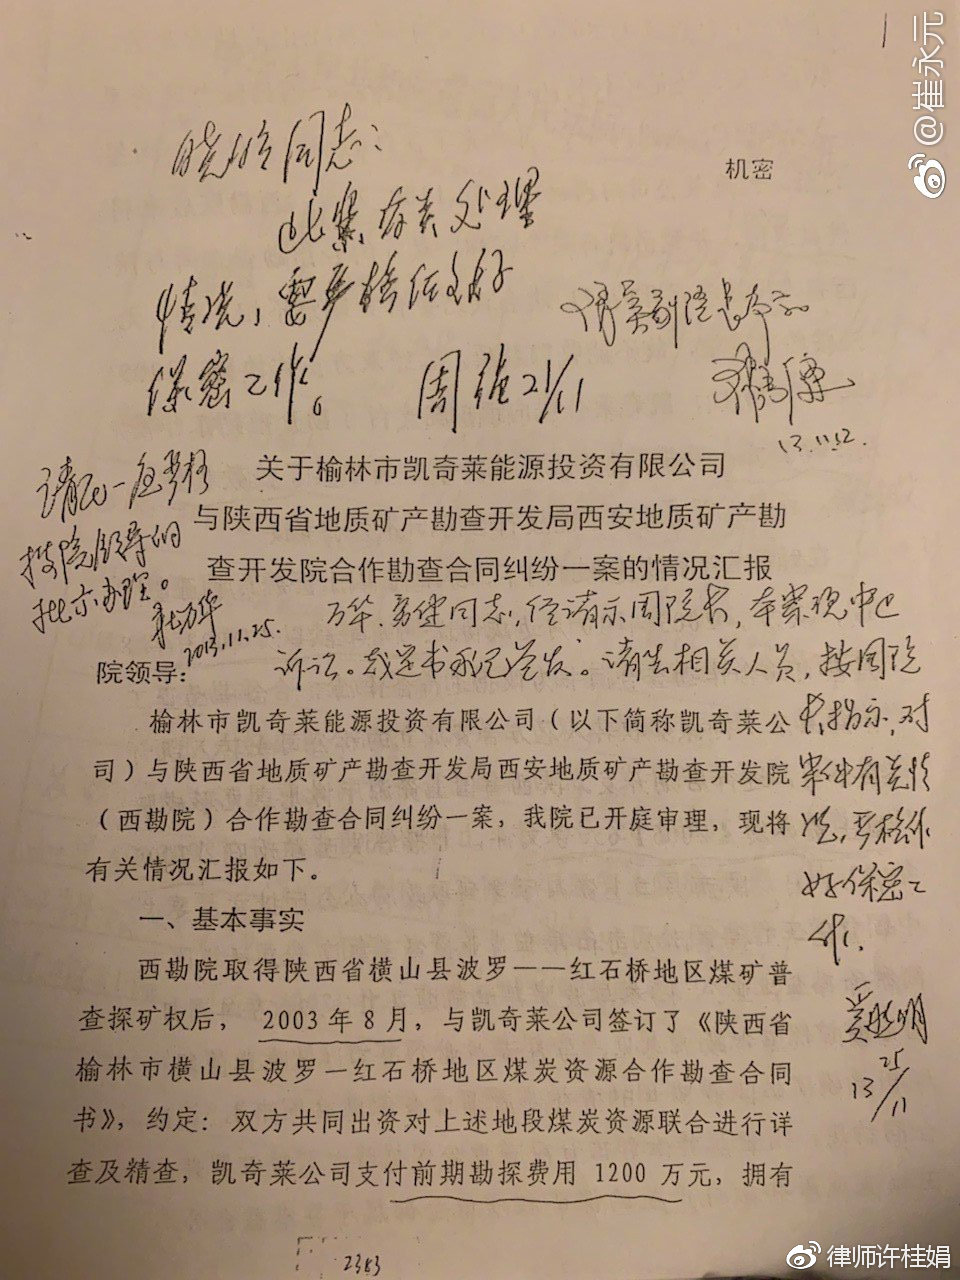 @崔永元
机密
晓明同志:
此案有关处理
情况,要严格做好
保密工作。 周强21/11
13.11.12.
请民一庭严格
按院领导的
批示办理。
杜万华
2013.11.25.
关于榆林市凯奇莱能源投资有限公司
与陕西省地质矿产勘查开发局西安地质矿产勘
查开发院合作勘查合同纠纷一案的情况汇报
万华、勇健同志,经请示周院长,本案现中止
诉讼。裁定书我已签发。请告相关人员,按周院
长指示,对
案件有关情
况,严格做
好保密工
作。
25/11
13
院领导:
榆林市凯奇莱能源投资有限公司(以下简称凯奇莱公
司)与陕西省地质矿产勘查开发局西安地质矿产勘查开发院
(西勘院)合作勘查合同纠纷一案,我院已开庭审理,现将
有关情况汇报如下。
一、基本事实
西勘院取得陕西省横山县波罗——红石桥地区煤矿普
查探矿权后,2003年8月,与凯奇莱公司签订了《陕西省
榆林市横山县波罗—红石桥地区煤炭资源合作勘查合同
书》,约定:双方共同出资对上述地段煤炭资源联合进行详
查及精查,凯奇莱公司支付前期勘探费用1200万元,拥有
2383
律师许桂娟